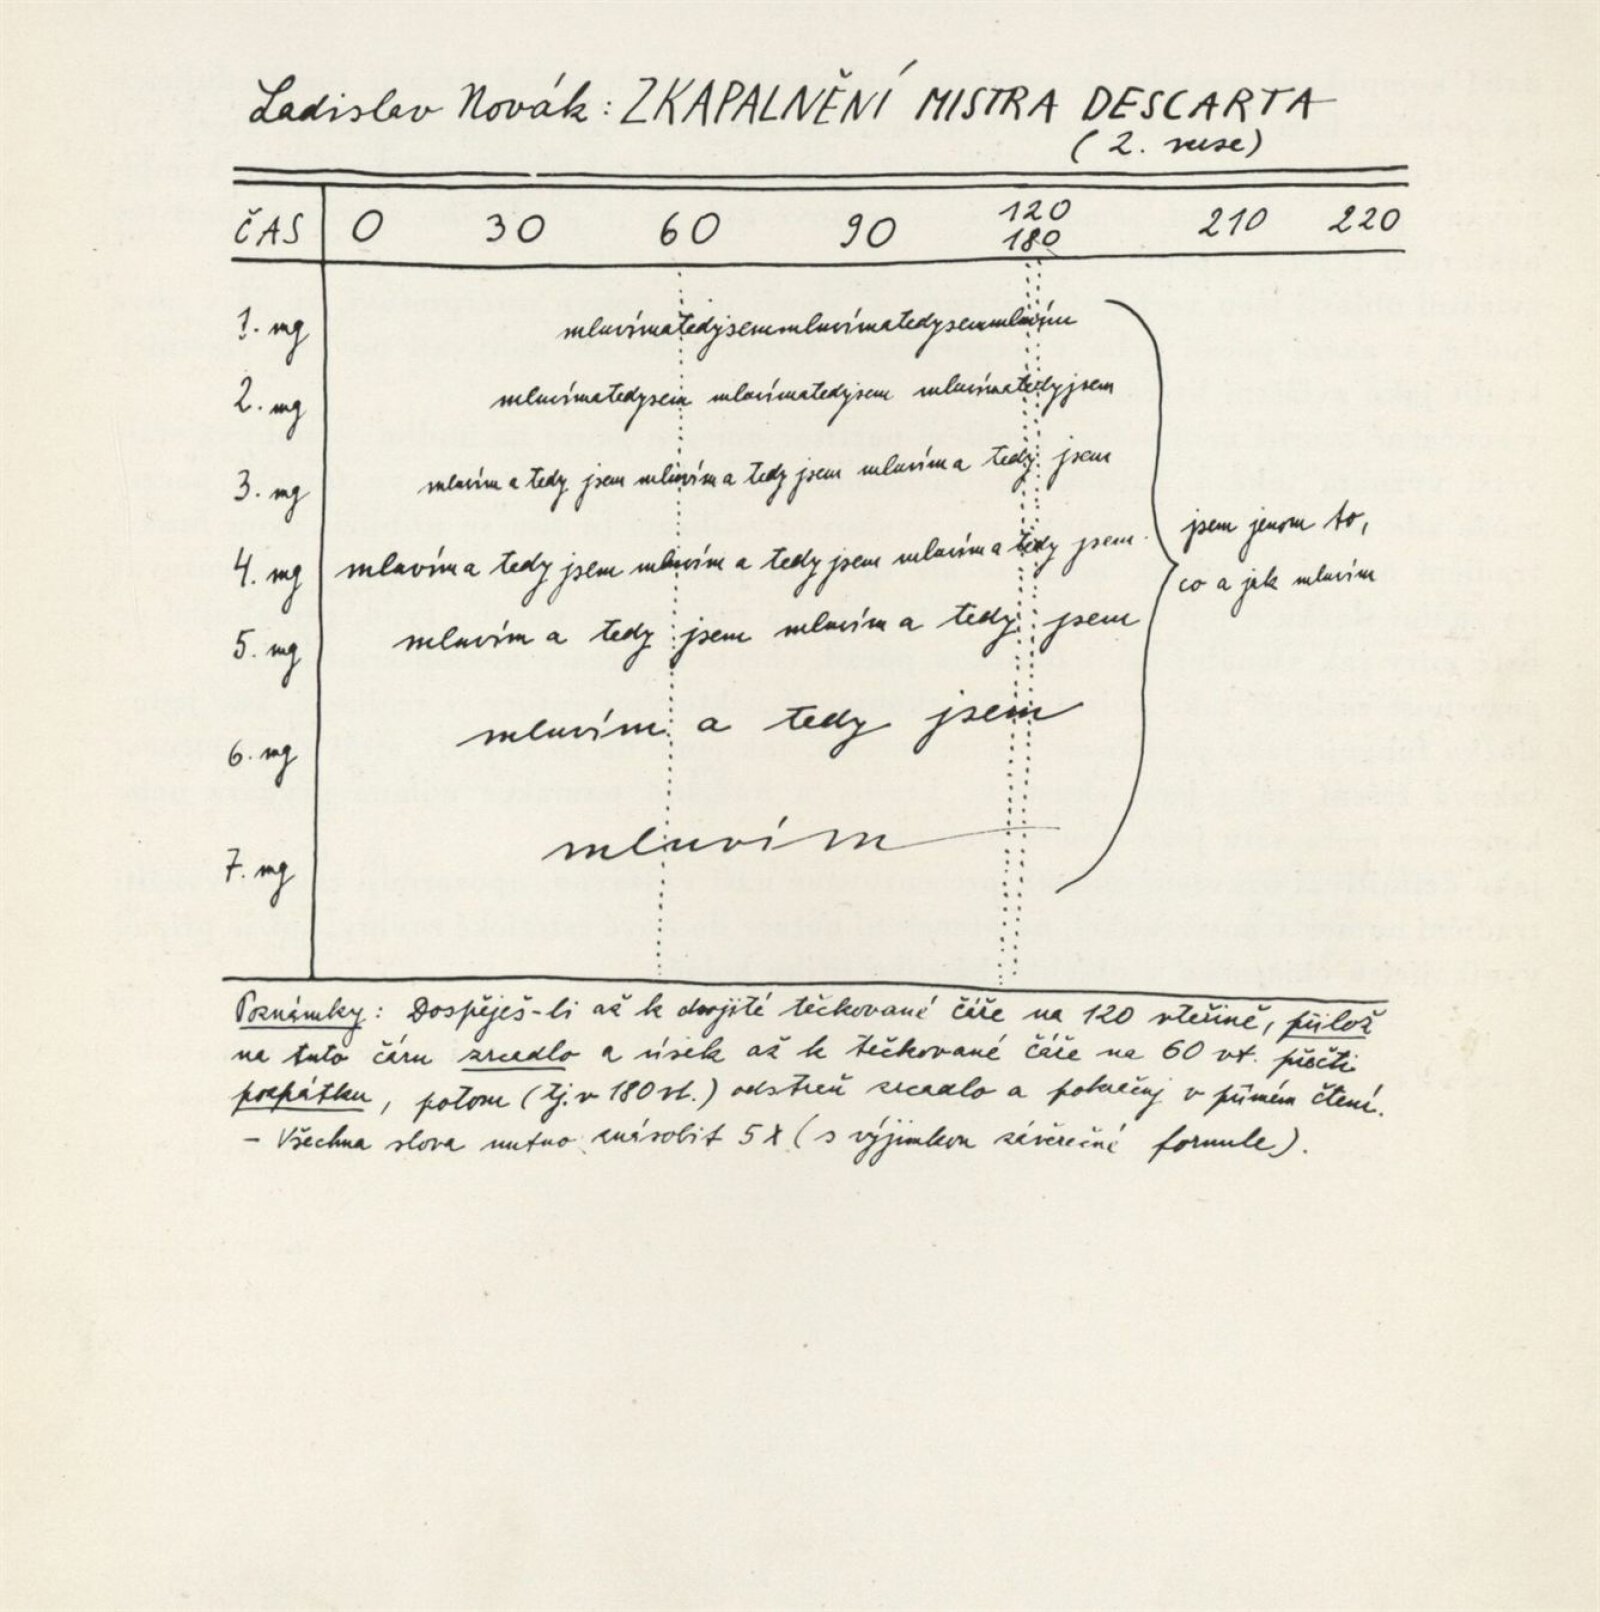 Ladislav Novák: ZKAPALNĚNÍ MISTRA DESCARTA
(2. verse)
ČAS 0 30 60 90 120 180 210 220
1. mg mluvímatedyjsemmluvímatedysemmluvím
2. mg mluvímatedysem mluvímatedyjsem mluvímatedyjsem
3. mg mluvím a tedy jsem mluvím a tedy jsem mluvím a tedy jsem
4. mg mluvím a tedy jsem mluvím a tedy jsem mluvím a tedy jsem
jsem jenom to,
co a jak mluvím
5. mg mluvím a tedy jsem mluvím a tedy jsem
6. mg mluvím a tedy jsem
7. mg mluvím
Poznámky: Dospěješ-li až k dvojité tečkované čáře na 120 vteřině, přilož
na tuto čáru zrcadlo a úsek až k tečkované čáře na 60 vt. přečti
pozpátku, potom (tj. v 180 vt.) odstraň zrcadlo a pokračuj v přímém čtení.
- Všechna slova nutno znásobit 5 X (s výjimkou závěrečné formule).